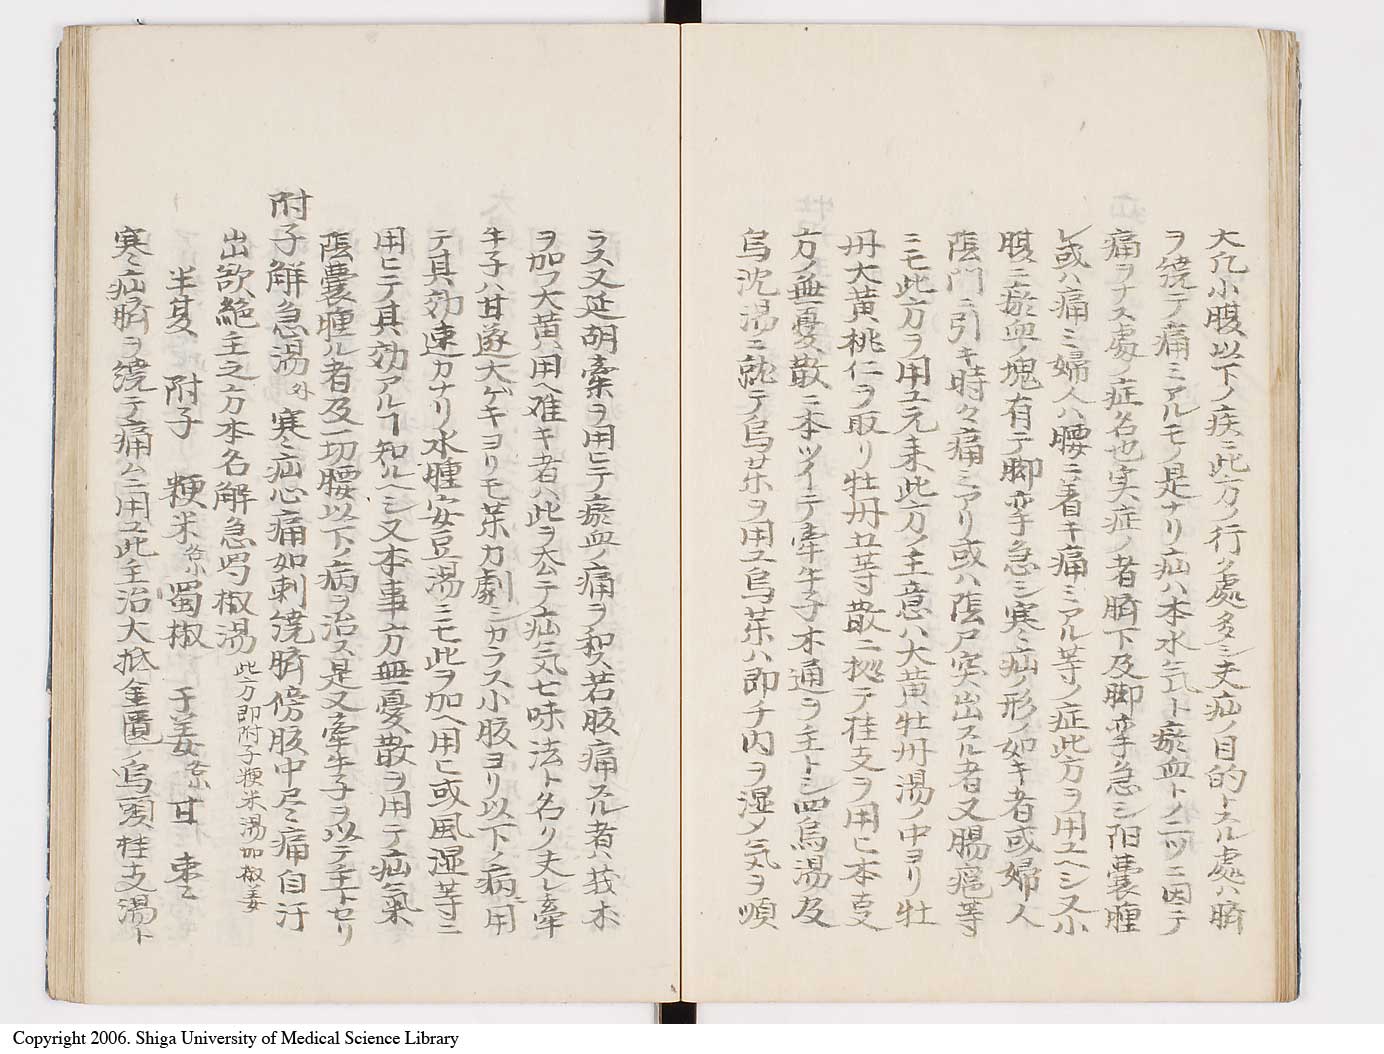 大凡小腹以下ノ疾ニ此方ノ行ク處多シ夫疝ノ目的トスル處ハ臍
ヲ繞テ痛ミアルモノ是ナリ疝ハ本水気ト瘀血トノ二ツニ因テ
痛ヲナス處ノ症名也実症ノ者臍下及脚攣急シ阳囊腫
レ或ハ痛ミ婦人ハ腰ニ著キ痛ミアル等ノ症此方ヲ用ユヘシ又小
腹ニ瘀血ノ塊有テ脚攣急シ寒疝ノ形ノ如キ者或婦人
陰門ニ引キ時々痛ミアリ或ハ陰戸突出スル者又腸㿗等
ニモ此方ヲ用ユ元来此方ノ主意ハ大黄牡丹湯ノ中ヨリ牡
丹大黄桃仁ヲ取リ牡丹五等散ニ拠テ桂支ヲ用ヒ本支
方ノ無憂散ニ本ツイテ牽牛子木通ヲ主トシ四烏湯及
烏沈湯ニ就テ烏茱ヲ用ユ烏茱ハ即チ内ヲ湿メ気ヲ順
ラス又延胡牽ヲ用ヒテ瘀血ノ痛ヲ和ス若腹痛スル者ハ莪朮
ヲ加フ大黄用ヘ难キ者ハ此ヲ去テ疝気七味法ト名ク夫レ牽
牛子ハ甘遂大ゲキヨリモ茱力劇シカラス小腹ヨリ以下ノ病ニ用
テ其効速カナリ水腫実豆湯ニモ此ヲ加ヘ用ヒ或風湿等ニ
用ヒテ其効アルヿ知ルヘシ又本事方無憂散ヲ用テ疝氣
陰囊腫ル者及一切腰以下ノ病ヲ治ス是又牽牛子ヲ以テ主トセリ
附子解急湯 外 寒疝心痛如刺繞臍傍腹中尽痛自汗
出欲絶主之方本名解急蜀椒湯 此方即附子粳米湯加椒姜
半夏 附子 粳米 各小 蜀椒 干姜 各小 甘 枣
寒疝臍ヲ繞テ痛ムニ用ユ此主治大抵金匱ノ烏頭桂支湯ト
Copyright 2006. Shiga University of Medical Science Library